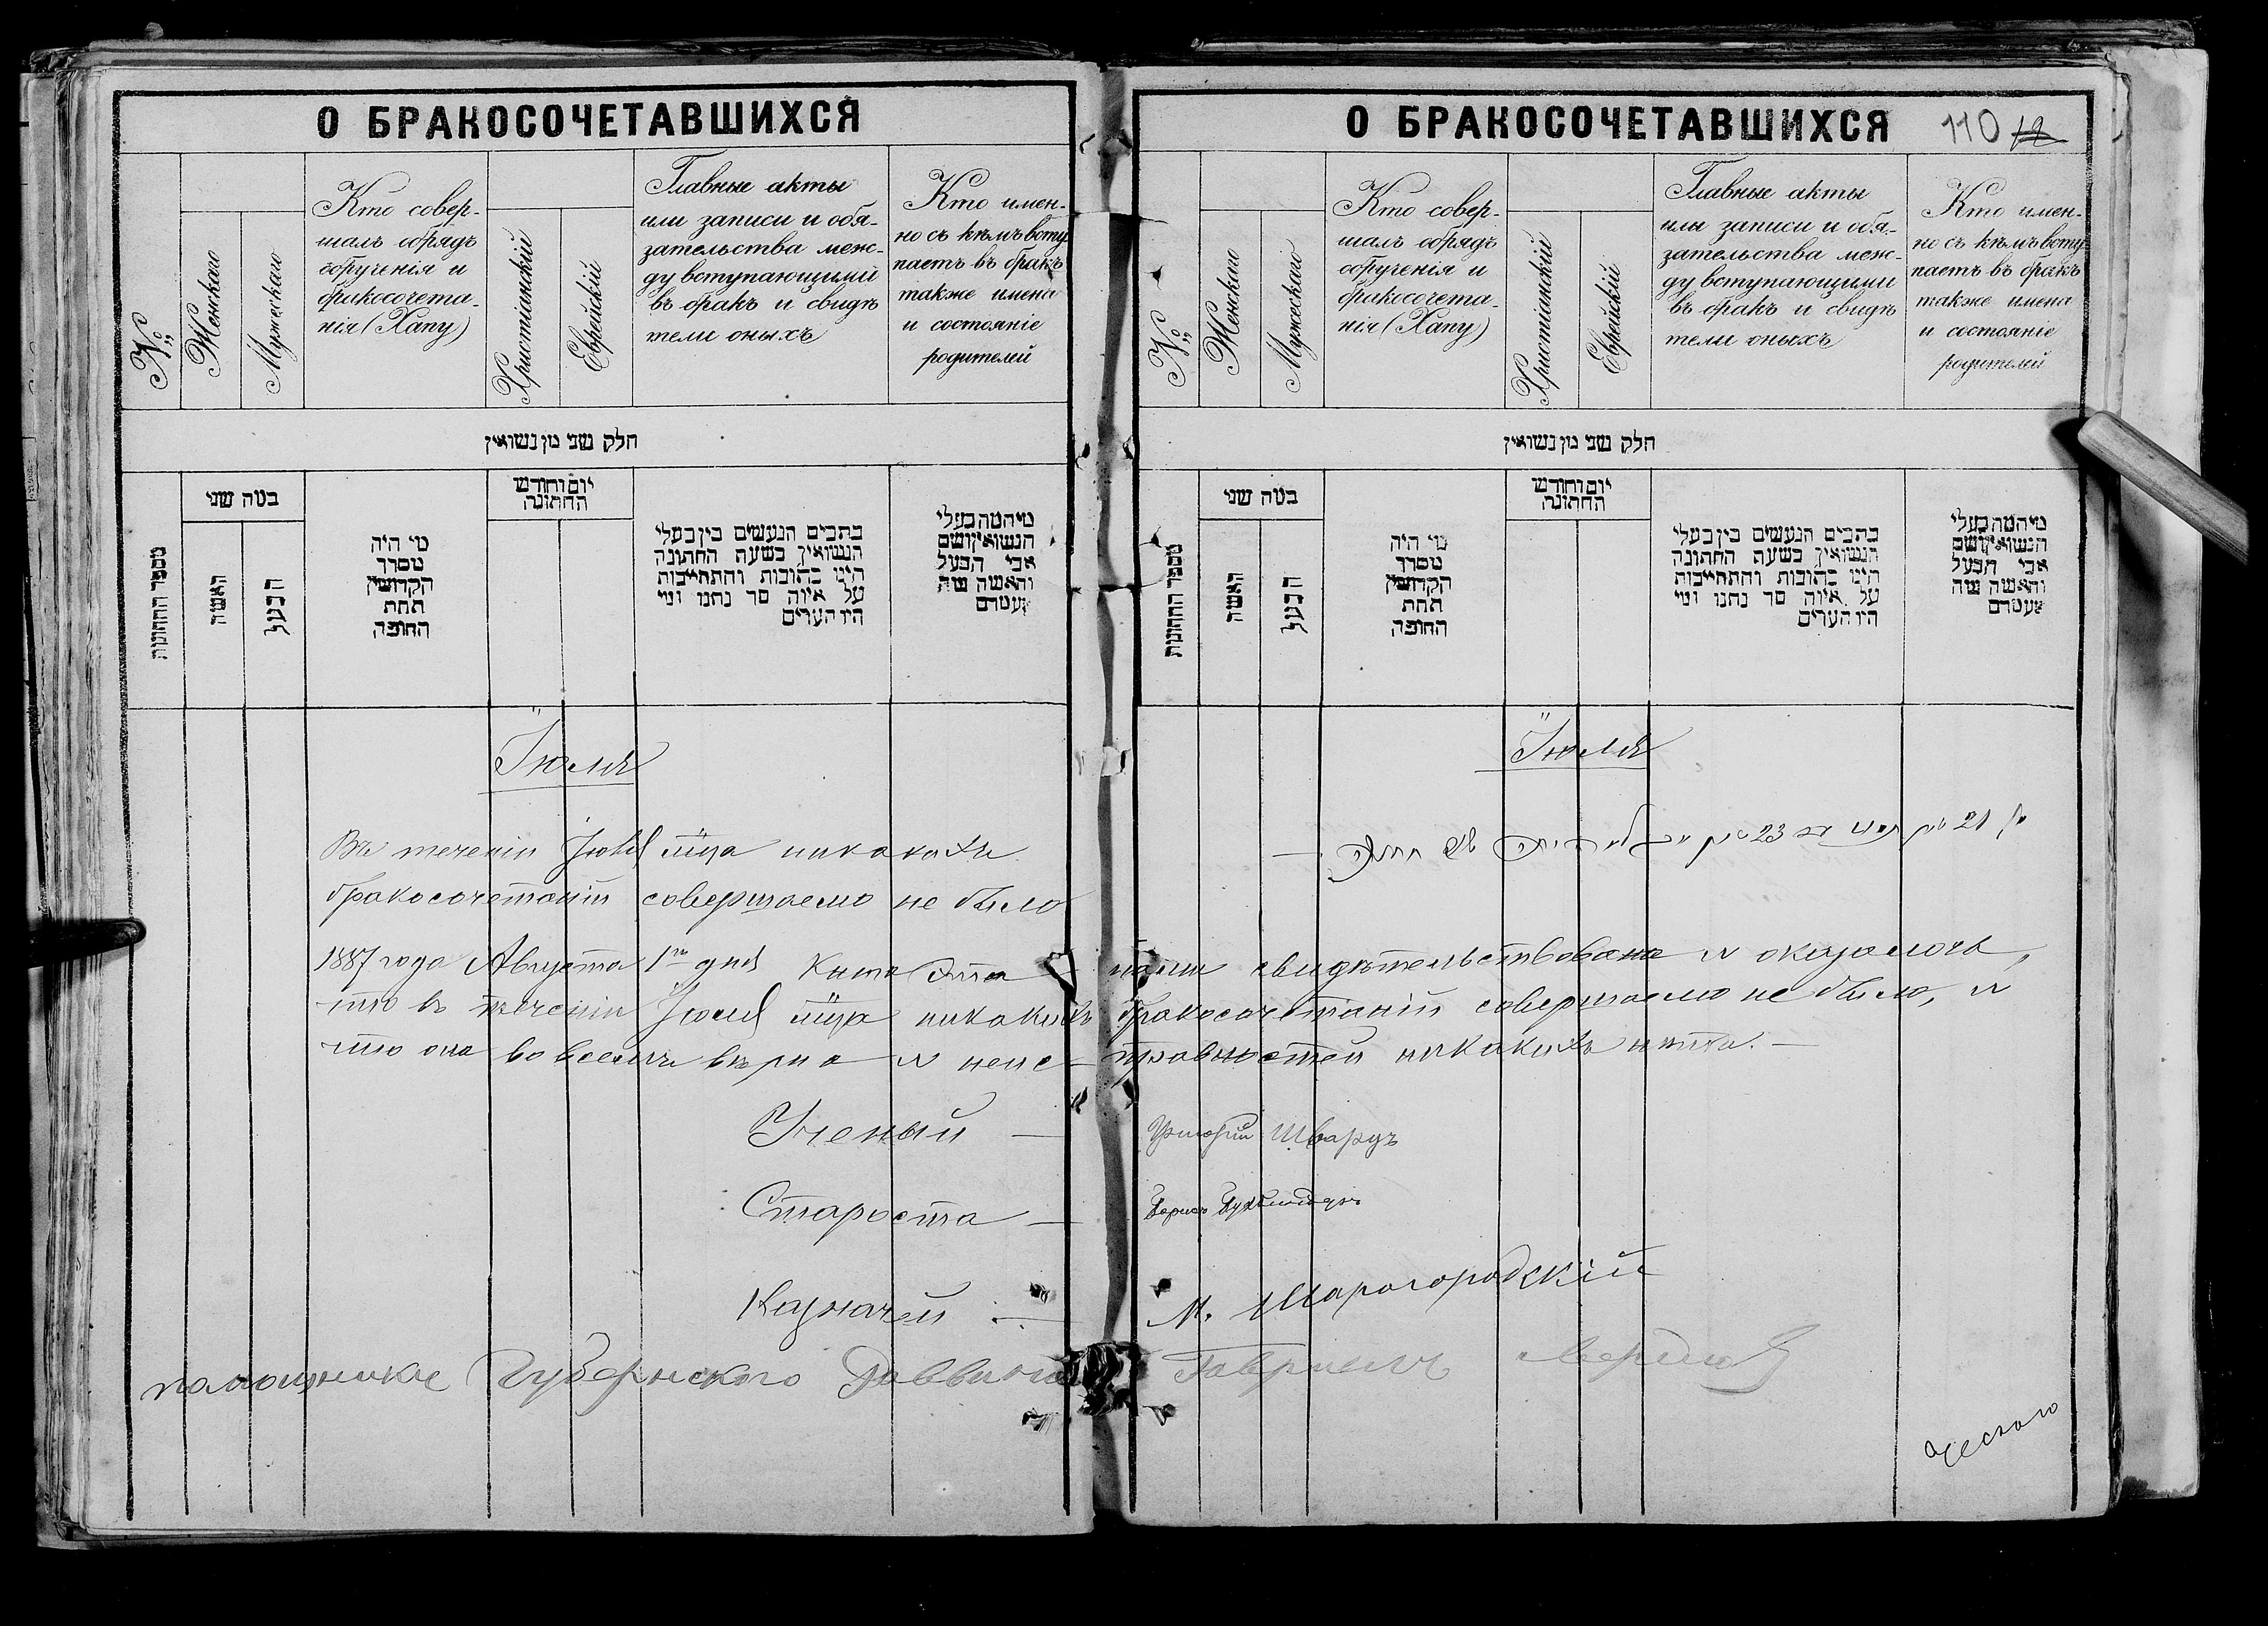 О БРАКОСОЧЕТАВШИХСЯ
№
Женскаго
Мужескаго
Кто совер-
шалъ обрядъ
обрученія и
бракосочета-
нія (Хапу)
Христіанскій
Еврейскій
Главные акты
или записи и обя-
зательства меж-
ду вступающими
въ бракъ и свидѣ
тели оныхъ
Кто имен-
но съ кѣмъ всту
паетъ въ бракъ
также имена
и состояніе
родителей
חלק שני מן נשואין
מספר החתונות
במה שני
האשה
הבעל
מי היה
מסדר
הקדושין
תחת
החופה
יום וחודש
החתונה
כתבים הנעשים בין בעלי
הנשואין בשעת החתונה
היינו כתובות והתחייבות
על איזה סך נתנו ומי
היו העדים
מי המה בעלי
הנשואין ושם
אבי הבעל
והאשה ומה
מעמדם
Іюля
Въ теченіи Іюля мца никакихъ
бракосочетаній совершаемо не было
О БРАКОСОЧЕТАВШИХСЯ 110 12
№
Женскаго
Мужескаго
Кто совер-
шалъ обрядъ
обрученія и
бракосочета-
нія (Хапу)
Христіанскій
Еврейскій
Главные акты
или записи и обя-
зательства меж-
ду вступающими
въ бракъ и свидѣ
тели оныхъ
Кто имен-
но съ кѣмъ всту
паетъ въ бракъ
также имена
и состояніе
родителей
חלק שני מן נשואין
מספר החתונות
במה שני
האשה
הבעל
מי היה
מסדר
הקדושין
תחת
החופה
יום וחודש
החתונה
כתבים הנעשים בין בעלי
הנשואין בשעת החתונה
היינו כתובות והתחייבות
על איזה סך נתנו ומי
היו העדים
מי המה בעלי
הנשואין ושם
אבי הבעל
והאשה ומה
מעמדם
Іюля
21 23
1887 года Августа 1го дня книга эта нами свидѣтельствована и оказалось,
что въ теченіи Іюля мца никакихъ бракосочетаній совершаемо не было, и
что она во всемъ вѣрна и неис- правностей никакихъ нѣтъ. —
Ученый — Шварцъ
Староста — Борисъ
Казначей — М. Шарогородскій
помощникъ Губернского Раввина Гавріилъ